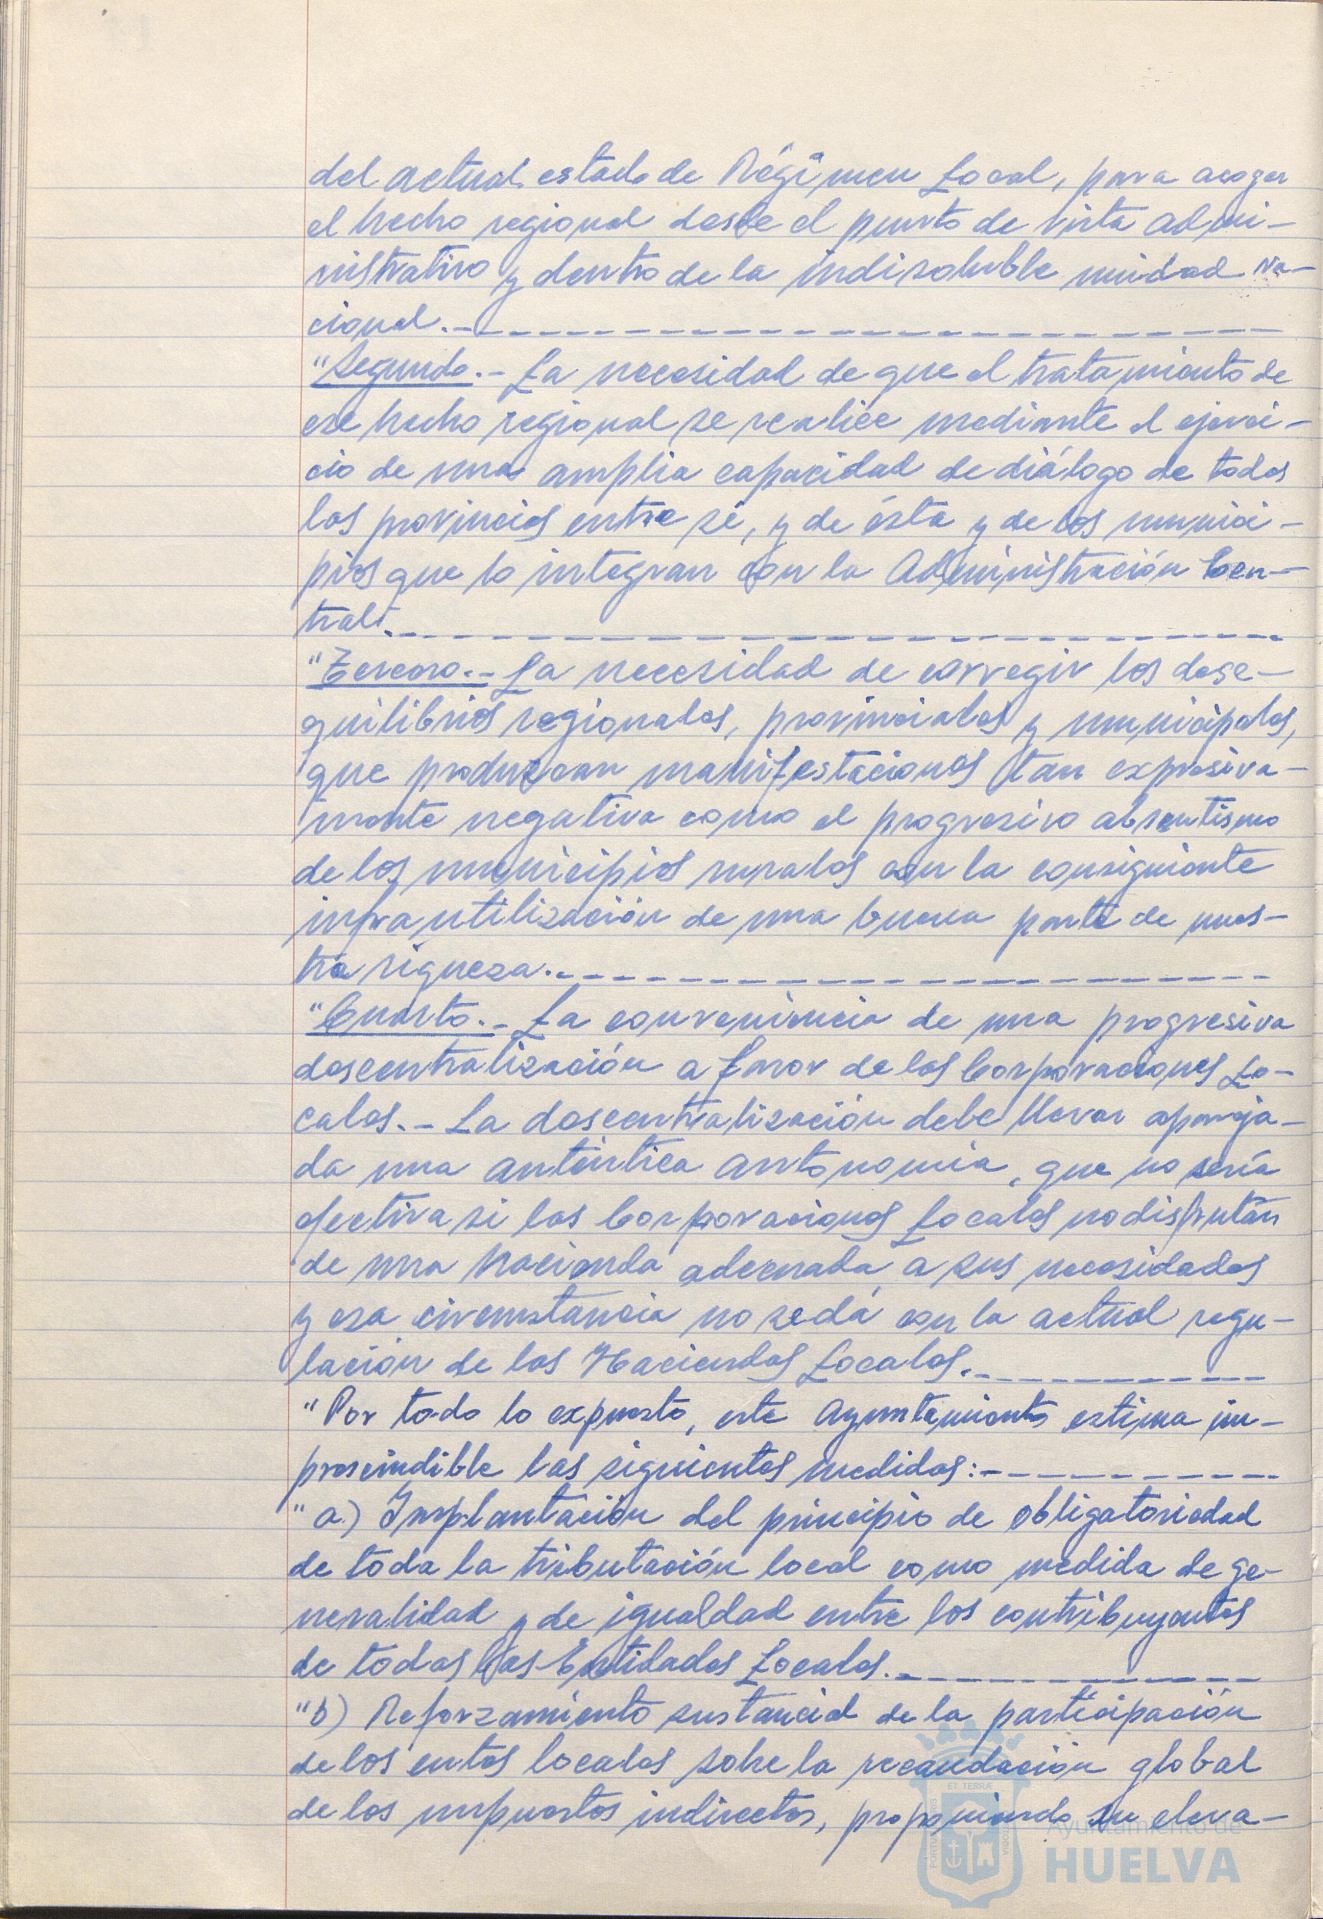 del actual estado de Régimen Local, para acoger
el hecho regional desde el punto de vista admi-
nistrativo y dentro de la indisoluble unidad Na-
cional.-
"Segundo.- La necesidad de que el tratamiento de
ese hecho regional se realice mediante el ejerci-
cio de una amplia capacidad de diálogo de todas
las provincias entre sí, y de ésta y de los munici-
pios que la integran con la Administración Cen-
tral.
"Tercero.- La necesidad de corregir los dese-
quilibrios regionales, provinciales y municipales,
que produzcan manifestaciones tan expresiva-
mente negativa como el progresivo absentismo
de los municipios rurales con la consiguiente
infrautilización de una buena parte de nues-
tra riqueza.-
"Cuarto.- La conveniencia de una progresiva
descentralización a favor de las Corporaciones Lo-
cales.- La descentralización debe llevar apareja-
da una auténtica autonomía, que no sería
efectiva si las Corporaciones Locales no disfrutan
de una hacienda adecuada a sus necesidades
y esa circunstancia no se dá con la actual regu-
lación de las Haciendas Locales.-
"Por todo lo expuesto, este Ayuntamiento estima im-
prescindible las siguientes medidas:-
"a) Implantación del principio de obligatoriedad
de toda la tributación local como medida de ge-
neralidad y de igualdad entre los contribuyentes
de todas las Entidades Locales.-
"b) Reforzamiento sustancial de la participación
de los entes locales sobre la recaudación global
de los impuestos indirectos, proponiendo su eleva-
ET TERRÆ
Ayuntamiento de
HUELVA